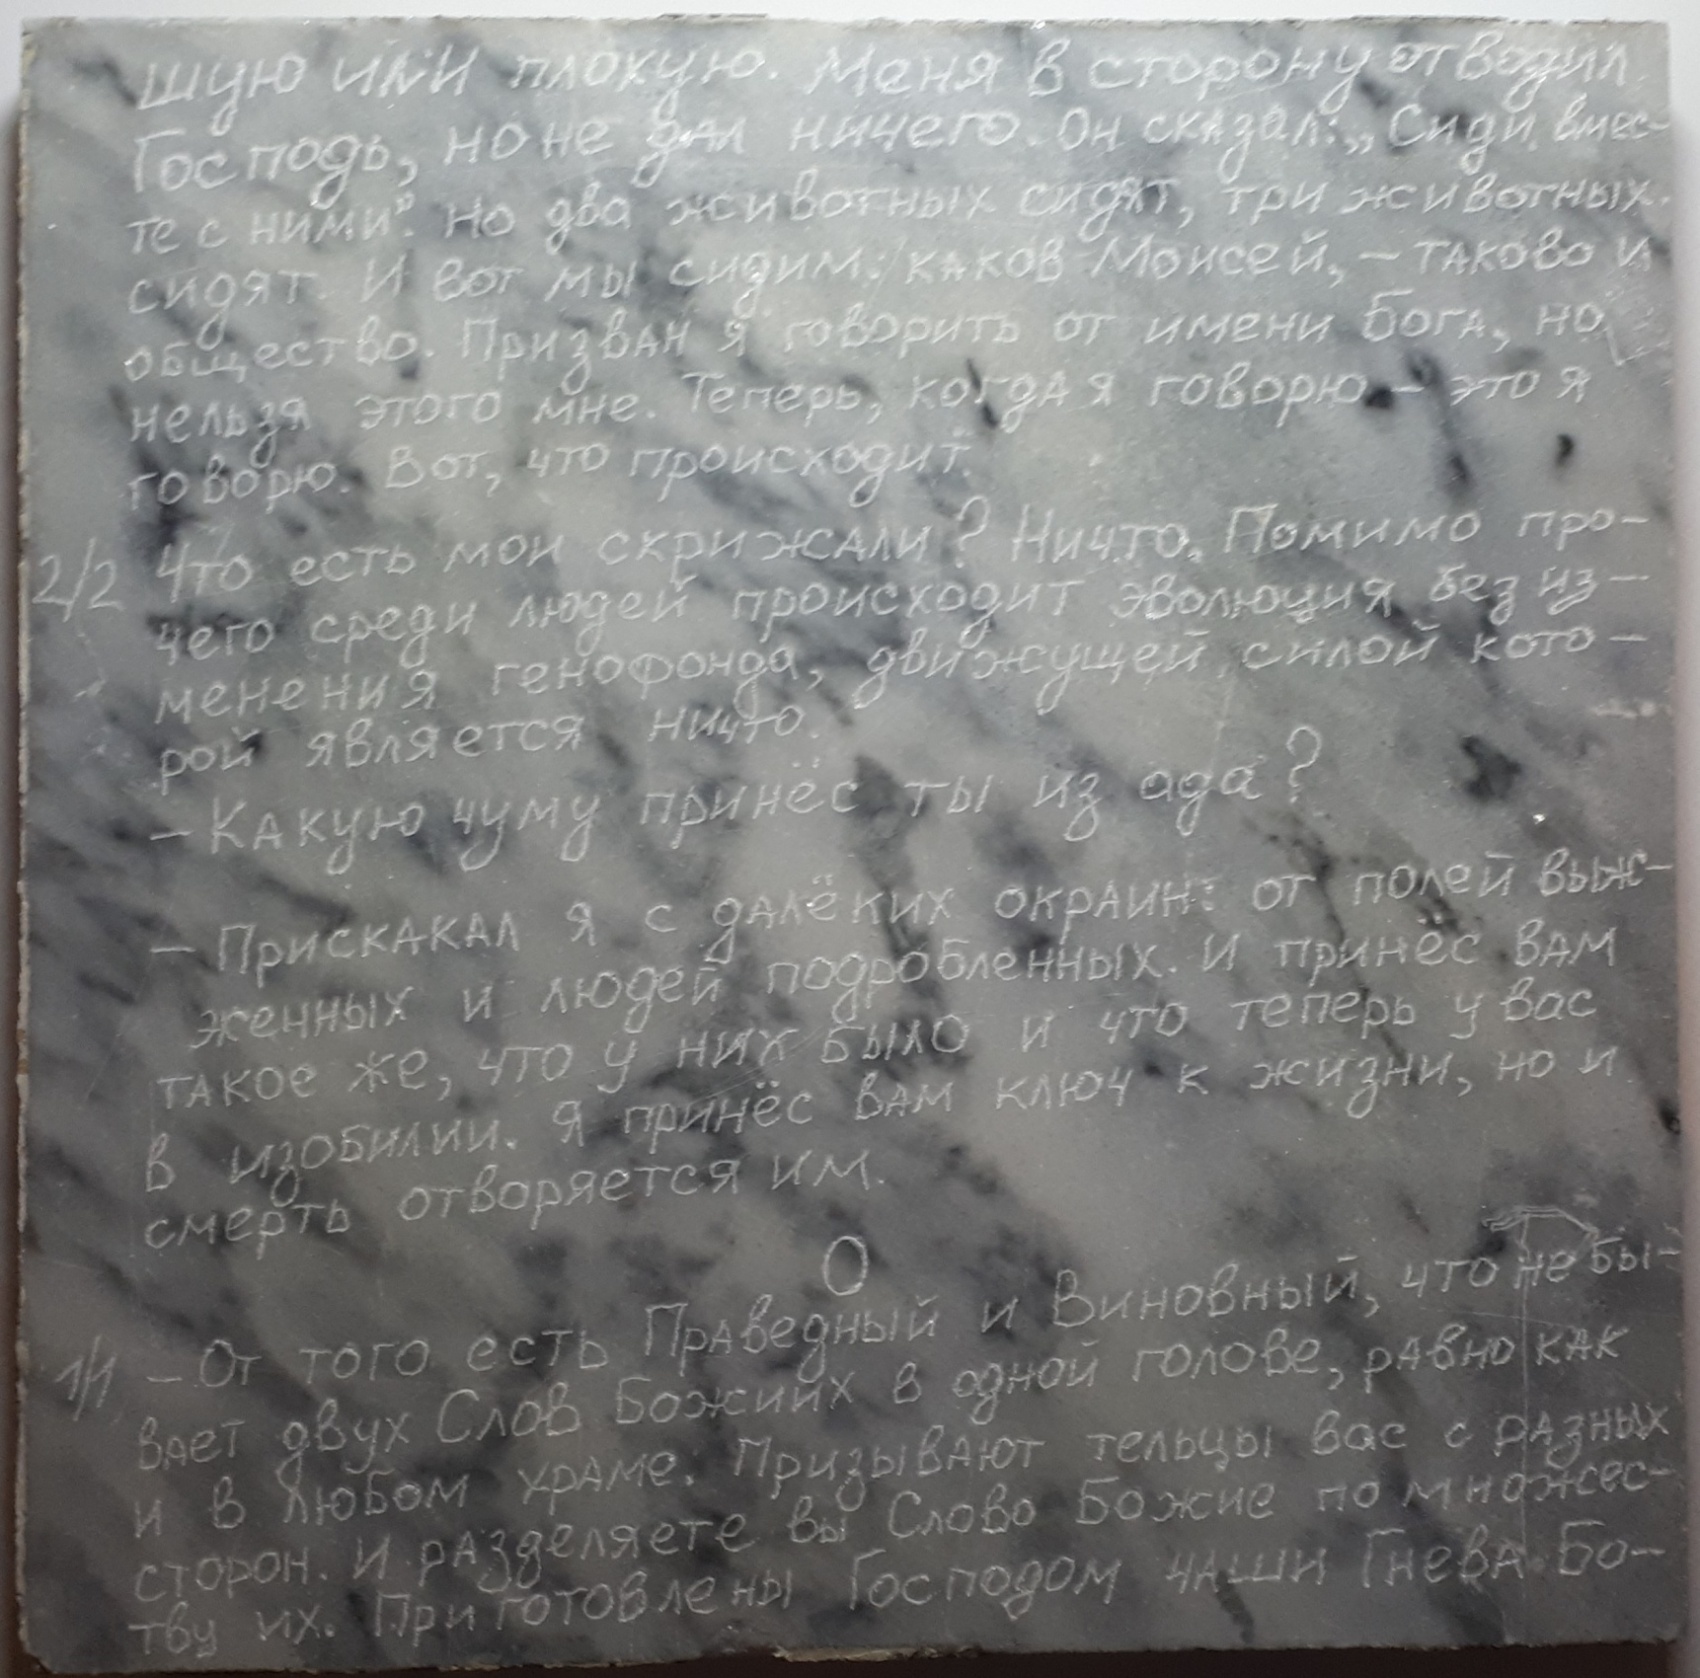 шую или плохую. Меня в сторону отводил
Господь, но не дал ничего. Он сказал: „Сиди вмес-
те с ними“. Но два животных сидят, три животных
сидят. И вот мы сидим: каков Моисей, – таково и
общество. Призван я говорить от имени Бога, но
нельзя этого мне. Теперь, когда я говорю – это я
говорю. Вот, что происходит.
2/2 Что есть мои скрижали? Ничто. Помимо про-
чего среди людей происходит эволюция без из-
менения генофонда, движущей силой кото-
рой является ничто.
– Какую чуму принёс ты из ада?
– Прискакал я с далёких окраин: от полей выж-
женных и людей подробленных. И принёс вам
такое же, что у них было и что теперь у вас
в изобилии. Я принёс вам ключ к жизни, но и
смерть отворяется им.
О
1/1 – От того есть Праведный и Виновный, что не бы-
вает двух Слов Божиих в одной голове, равно как
и в любом храме. Призывают тельцы вас с разных
сторон. И разделяете вы Слово Божие по множес-
тву их. Приготовлены Господом чаши Гнева Бо-